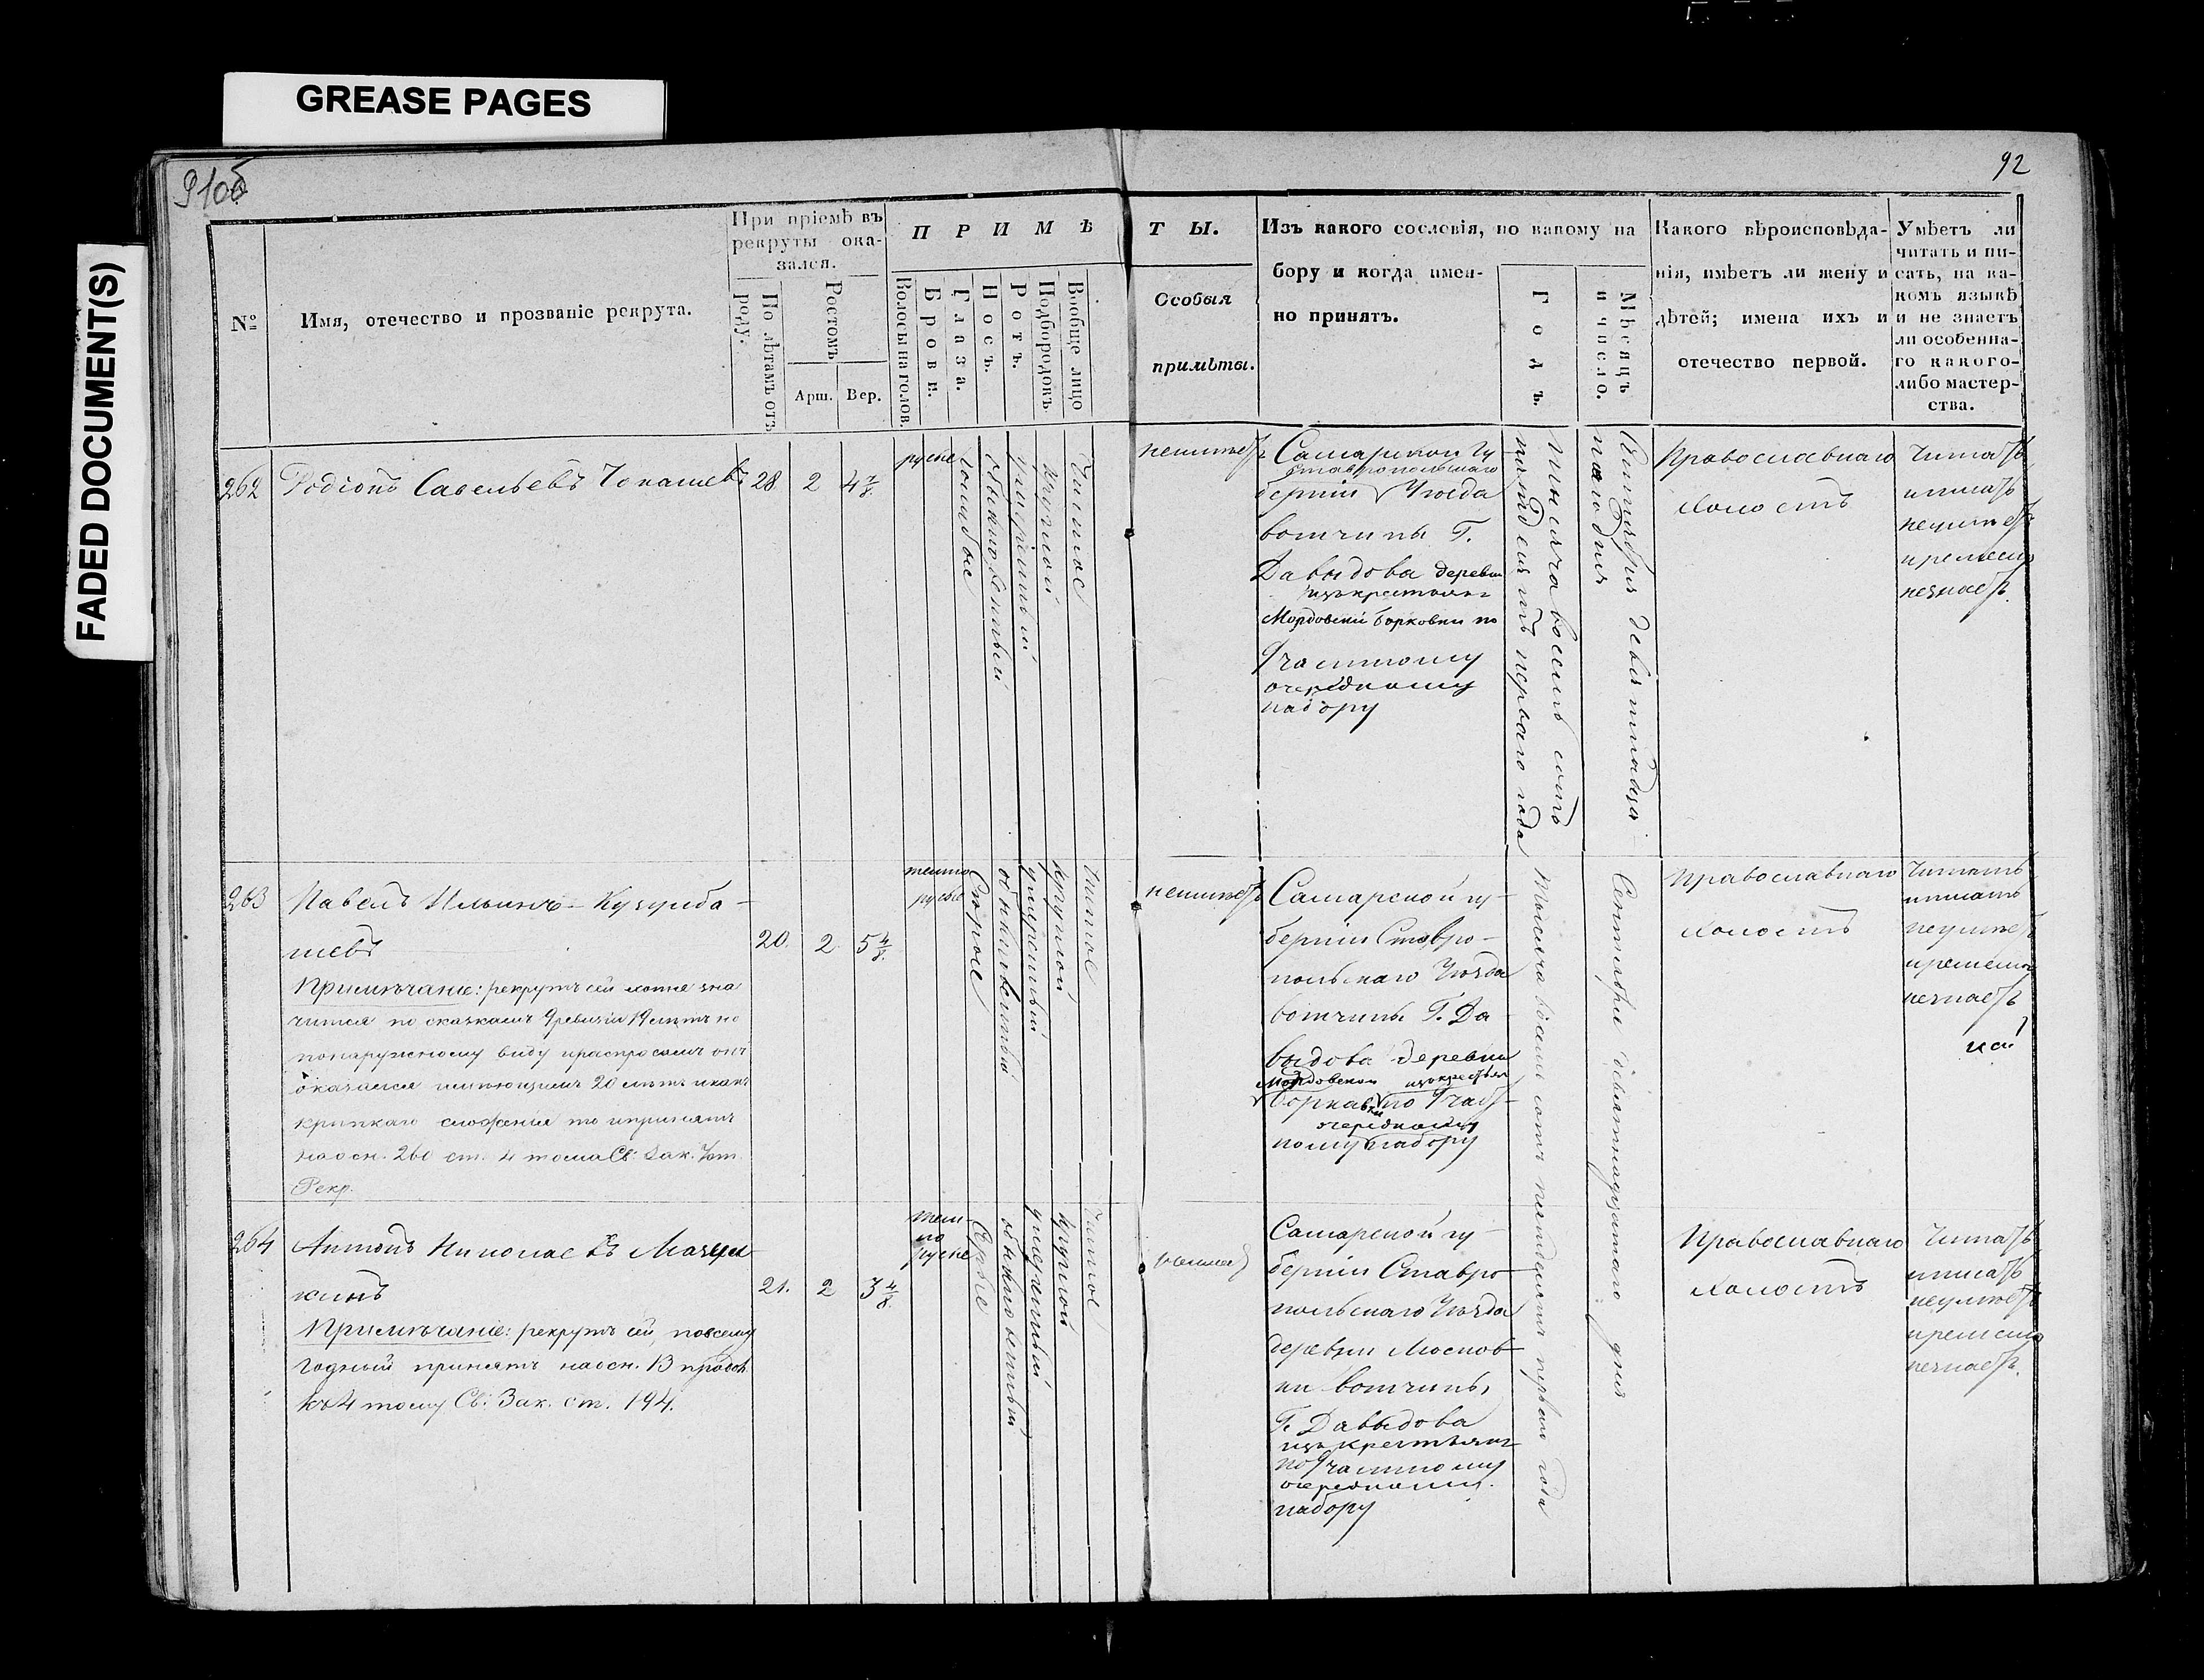 GREASE PAGES
FADED DOCUMENT(S)
91об
92
№
Имя, отечество и прозваніе рекрута.
При пріемѣ въ
рекруты ока-
зался.
По лѣтамъ отъ
роду.
Ростомъ
Арш.
Вер.
ПРИМѢ
Волосы на голов.
Брови.
Глаза.
Носъ.
Ротъ.
Подбородокъ
Вообще лицо
ТЫ.
Особыя
примѣты.
Изъ какого сословія, по какому на
бору и когда имен-
но принятъ.
Годъ.
Мѣсяцъ
и число.
Какого вѣроисповѣда-
нія, имѣетъ ли жену и
дѣтей; имена ихъ и
отечество первой.
Умѣетъ ли
читать и пи-
сать, на ка-
комъ языкѣ
и не знаетъ
ли особенна-
го какого-
либо мастер-
ства.
262
Родіонъ Савельевъ
28
2
4 7/8
русые
обыкновенный
умѣренный
круглой
Чистое
неимѣетъ
Самарской Гу
Ставропольскаго
берніи Уѣзда
вотчины Г.
Давыдова деревни
изъ крестьянъ
Мордовскій Борковки по
9 частному
очередному
набору
Тысяча восемь сотъ
пятдесятъ перваго года
Сентября девятнадца
таго дня
Православнаго
холостъ
Читать
и писать
неумѣетъ
и ремесла
незнаетъ.
263
Павелъ Ильинъ Кузумба-
шевъ
Примѣчаніе: рекрутъ сей хотя зна
чится по сказкамъ 9 ревизіи 19 лѣтъ но
понаружному виду и распросамъ онъ
оказался имѣющимъ 20 лѣтъ и какъ
крѣпкаго сложенія то и принятъ
на осн. 260 ст. 4 тома Св. Зак. Уст.
Рекр.
20.
2
5 4/8
темно
русые
Сѣрые
обыкновенный
умѣренный
круглой
Чистое
неимѣетъ
Самарской гу-
берніи Ставро-
польскаго Уѣзда
вотчины Г. Да
выдова деревни
Мордовской изъ крестьян
Борковки по 9 част-
очередному
ному набору
Тысяча восемь сотъ пятдесятъ перваго года
Сентября девятнадцатаго дня
Православнаго
холостъ
Читать
и писать
неумѣетъ
и ремесла
незнаетъ
264
Антонъ Николаевъ Мазул
кинъ
Примѣчаніе: рекрутъ сей, повсему
годный принятъ на осн. 13 продол.
къ 4 тому Св. Зак. ст. 194.
21.
2
3 4/8
тем-
но
русые
обыкновенный
умѣренный
круглой
Чистое
Самарской гу-
берніи Ставро-
польскаго Уѣзда
деревни Москов-
ки вотчины
Г. Давыдова
изъ крестьянъ
по 9 частному
очередному
набору
Православнаго
холостъ
Читать
и писать
неумѣетъ
и ремесла
незнаетъ.